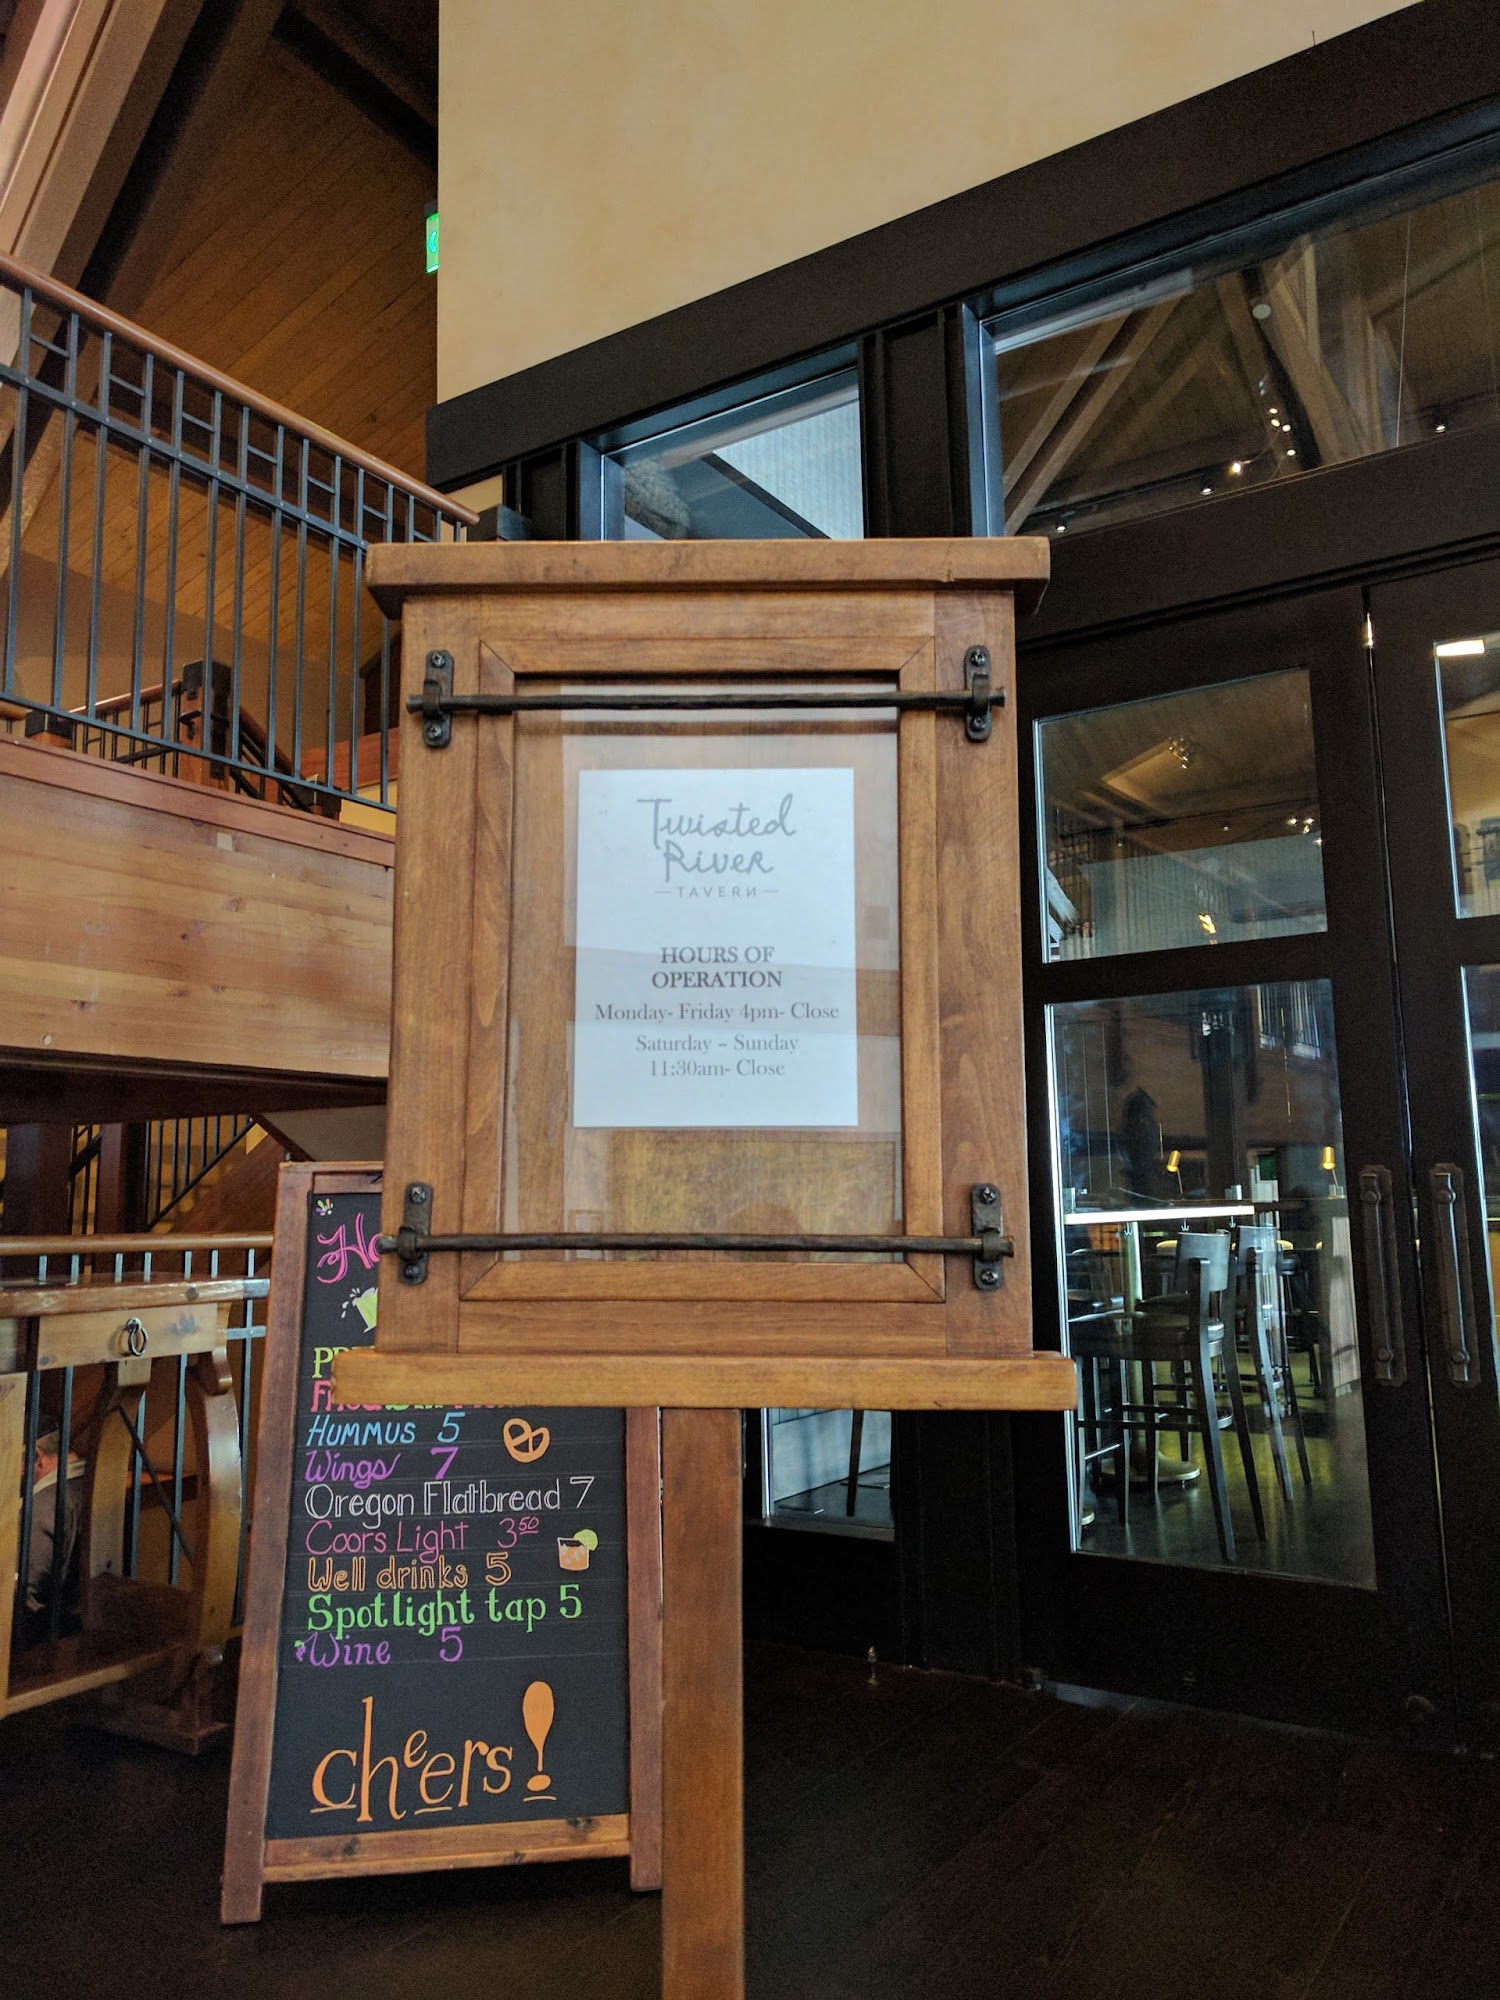 Twisted
River
TAVERN
HOURS OF
OPERATION
Monday- Friday 4pm- Close
Saturday – Sunday
11:30am- Close
HUMMUS 5
Wings 7
Oregon Flatbread 7
Coors Light 3⁵⁰
Well drinks 5
Spotlight tap 5
Wine 5
cheers!